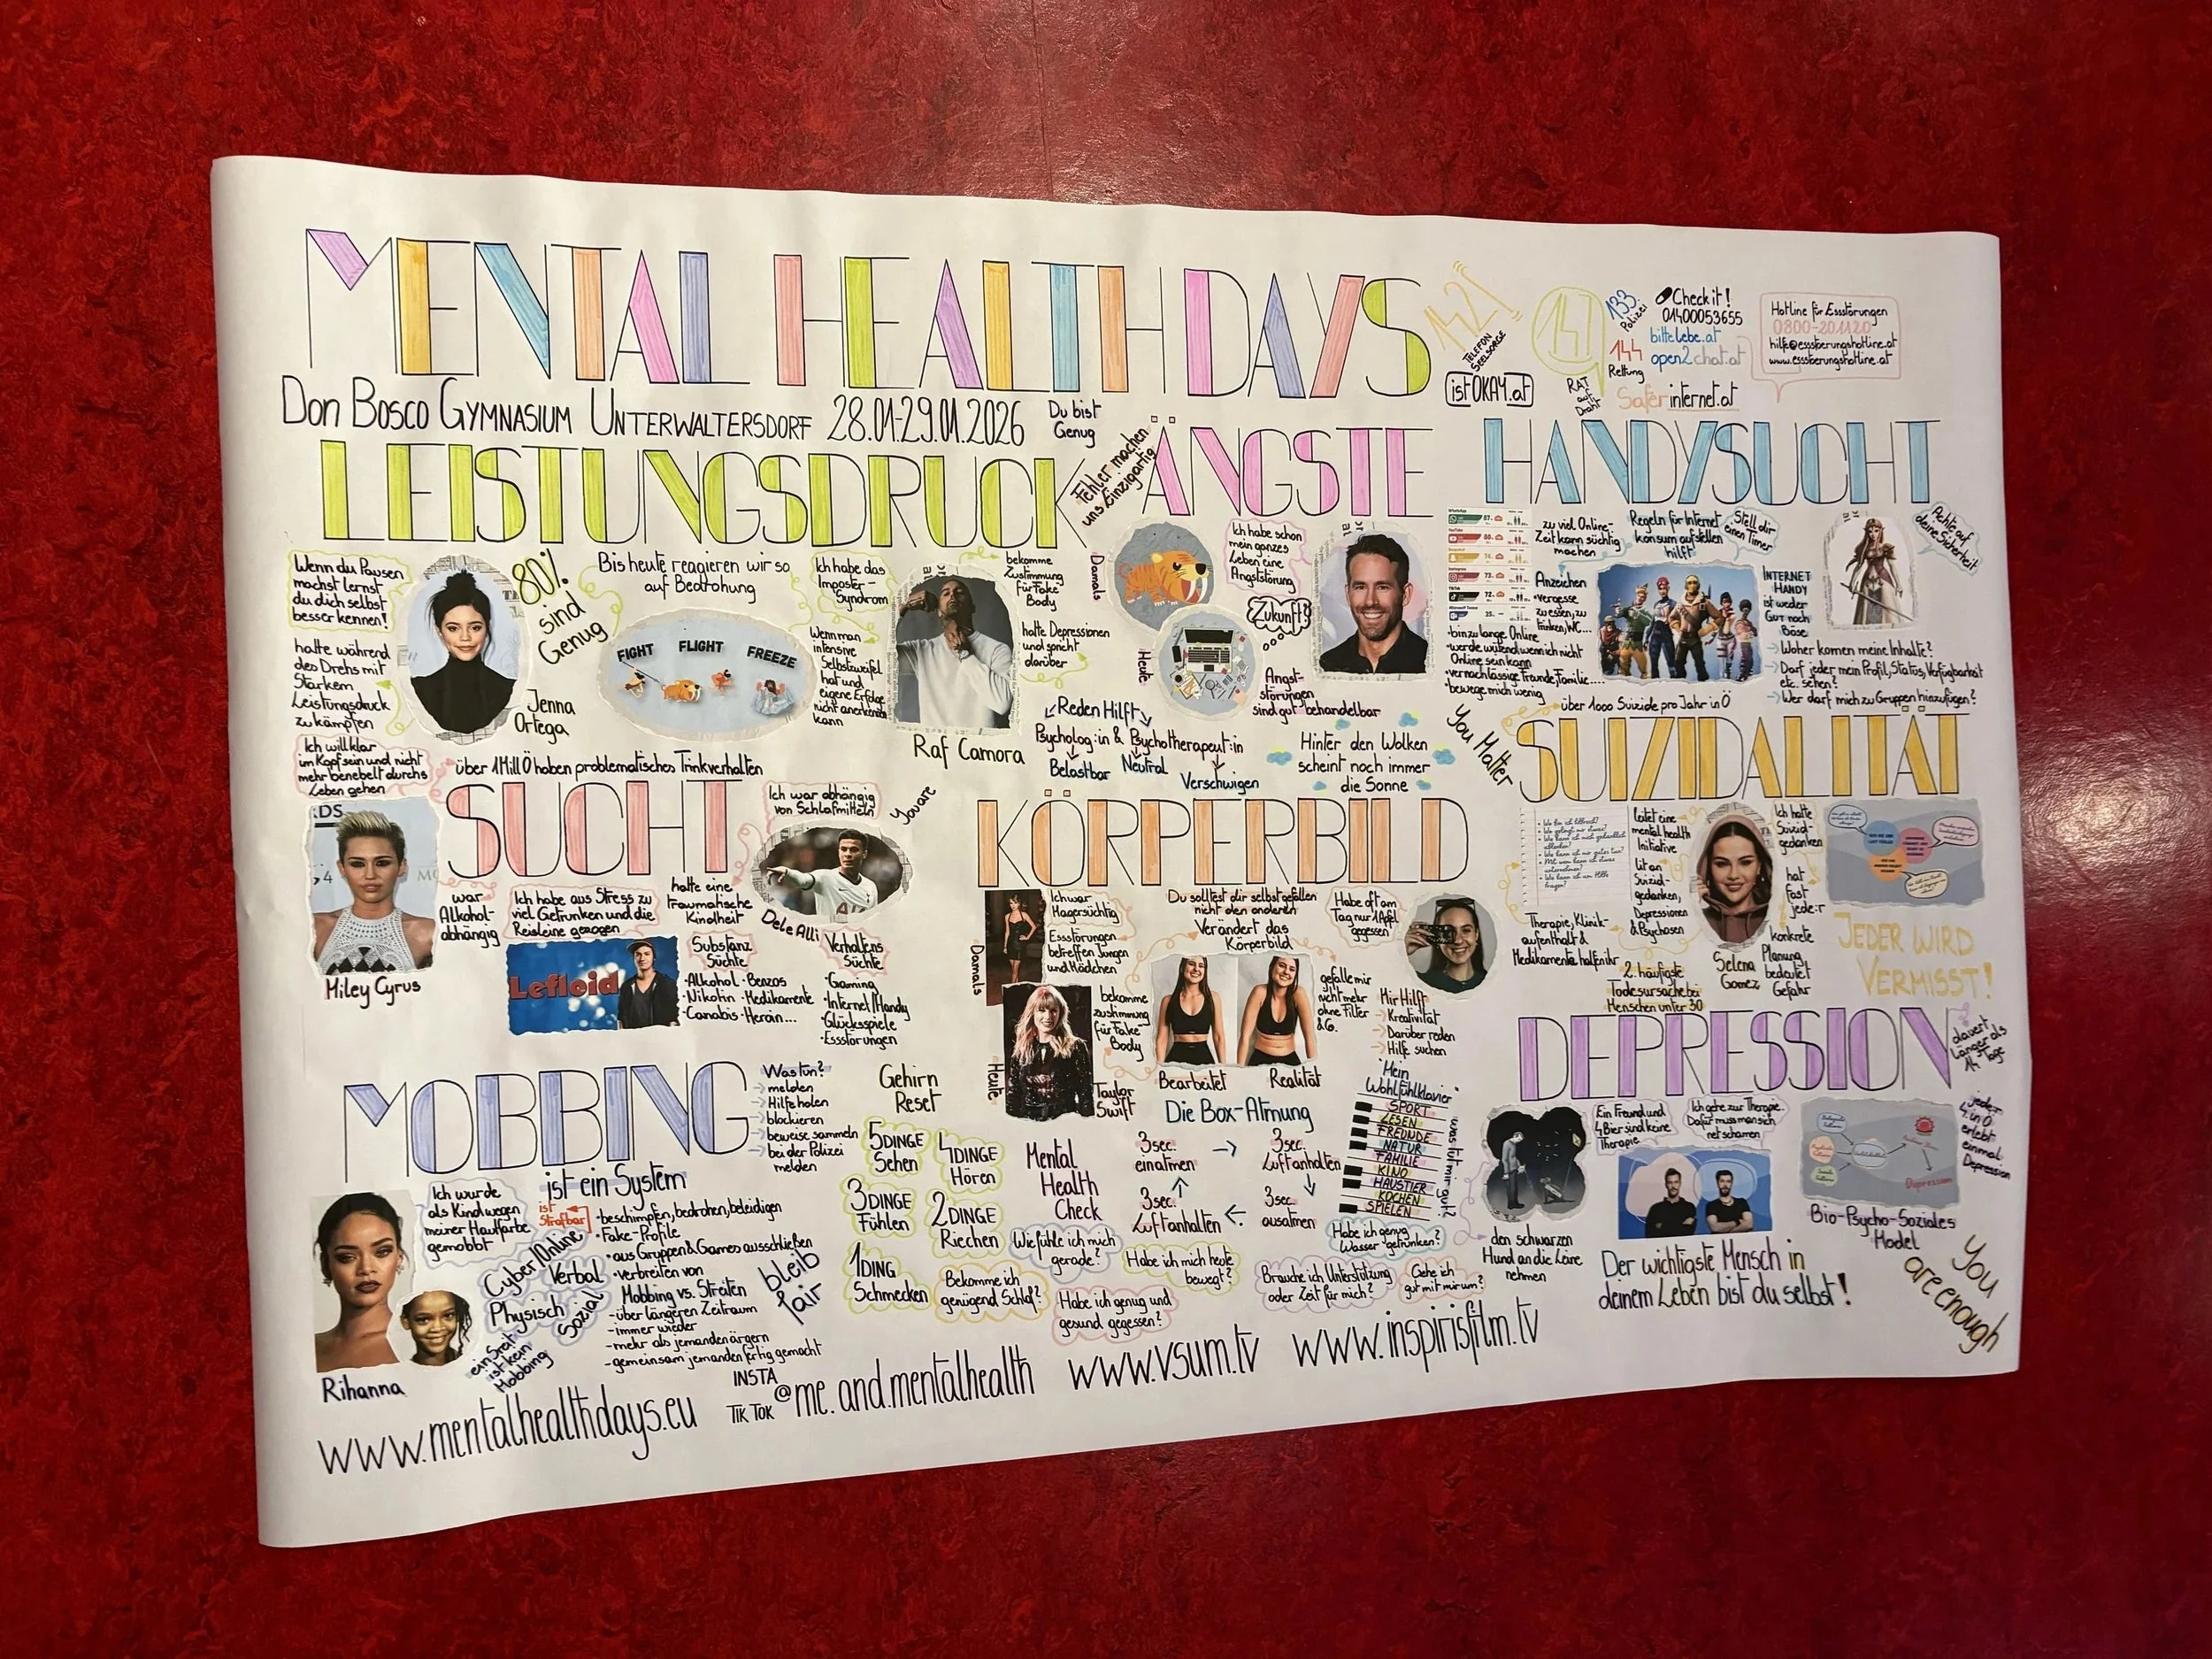 MENTAL HEALTH DAYS
DON BOSCO GYMNASIUM UNTERWALTERSDORF 28.01-29.01.2026
Du bist
Genug
142
TELEFON
SEELSORGE
istOKAY.at
147
RAT
auf
Draht
133
Polizei
144
Rettung
Check it!
01400053655
bittelebe.at
open2chat.at
Saferinternet.at
Hotline für Essstörungen
0800-201120
LEISTUNGSDRUCK
Fehler machen
uns Einzigartig
Wenn du Pausen
machst lernst
du dich selbst
besser kennen!
hatte während
des Drehs mit
Starkem
Leistungsdruck
zu kämpfen
Jenna
Ortega
80%
sind
Genug
Bis heute reagieren wir so
auf Bedrohung
FIGHT FLIGHT FREEZE
Ich habe das
Imposter-
Syndrom
Wenn man
intensive
Selbstzweifel
hat und
eigene Erfolge
nicht anerkennen
kann
Raf Camora
bekomme
Zustimmung
für Fake
Body
hatte Depressionen
und spricht
darüber
ÄNGSTE
Damals
Heute
Ich habe schon
mein ganzes
Leben eine
Angststörung
Zukunft?
Angst-
störungen
sind gut behandelbar
Reden Hilft
Psycholog:in & Psychotherapeut:in
Belastbar
Neutral
Verschwigen
Hinter den Wolken
scheint noch immer
die Sonne
HANDYSUCHT
zu viel Online-
Zeit kann süchtig
machen
Regeln für Internet
konsum aufstellen
hilft
Stell dir
einen Timer
Achte auf
deine Sicherheit
Anzeichen
•vergesse
zu essen, zu
trinken, WC...
•bin zu lange Online
•werde wütend wenn ich nicht
Online sein kann
•vernachlässige Freunde, Familie....
•bewege mich wenig
INTERNET
HANDY
ist weder
GUT noch
Böse
Woher komen meine Inhalte?
Darf jeder mein Profil, Status, Verfügbarkeit
etc. sehen?
Wer darf mich zu Gruppen hinzufügen?
SUCHT
über 1 Mill Ö haben problematisches Trinkverhalten
Ich will klar
im Kopf sein und nicht
mehr benebelt durchs
Leben gehen
war
Alkohol-
abhängig
Miley Cyrus
Ich habe aus Stress zu
viel Getrunken und die
Reisleine gezogen
Lefloid
Ich war abhängig
von Schlafmitteln
hatte eine
traumatische
Kindheit
Dele Alli
You are
Substanz
Süchte
•Alkohol •Benzos
•Nikotin •Medikamente
•Canabis •Heroin...
Verhaltens
Süchte
•Gaming
•Internet/Handy
•Glücksspiele
•Essstörungen
KÖRPERBILD
Damals
Heute
Ich war
Magersüchtig
Essstörungen
betreffen Jungen
und Mädchen
bekomme
zustimmung
für Fake
Body
Taylor
Swift
Du solltest dir selbst gefallen
nicht den anderen
Verändert das
Körperbild
Bearbeitet
Realität
Habe oft am
Tag nur 1 Apfel
gegessen
gefalle mir
nicht mehr
ohne Filter
& Co.
Mir Hilft
Kreativität
Darüber reden
Hilfe suchen
You Matter
über 1000 Suizide pro Jahr in Ö
SUIZIDALITÄT
Therapie, Klinik-
aufenthalt &
Medikamente halfen ihr
leitet eine
mental health
Initiative
litt an
Suizid-
gedanken,
Depressionen
& Psychosen
2. häufigste
Todesursache bei
Menschen unter 30
Selena
Gomez
Ich hatte
Suizid-
gedanken
hat
fast
jede:r
konkrete
Planung
bedeutet
Gefahr
JEDER WIRD
VERMISST!
MOBBING
ist ein System
Was tun?
melden
Hilfe holen
blockieren
beweise sammeln
bei der Polizei
melden
Ich wurde
als Kind wegen
meiner Hautfarbe
gemobbt
Rihanna
ist
Strafbar
Cyber/Online
Verbal
Physisch
Sozial
ein Streit
ist kein
Mobbing
•beschimpfen, bedrohen, beleidigen
•Fake-Profile
•aus Gruppen & Games ausschließen
•verbreiten von
Mobbing vs. Streiten
-über längeren Zeitraum
-immer wieder
-mehr als jemanden ärgern
-gemeinsam jemanden fertig gemacht
bleib
fair
Gehirn
Reset
5 DINGE
Sehen
4 DINGE
Hören
3 DINGE
Fühlen
2 DINGE
Riechen
1 DING
Schmecken
Mental
Health
Check
Wie fühle ich mich
gerade?
Bekomme ich
genügend Schlaf?
Habe ich genug und
gesund gegessen?
Habe ich mich heute
bewegt?
Brauche ich Unterstützung
oder Zeit für mich?
Gehe ich
gut mit mir um?
Habe ich genug
Wasser getrunken?
Die Box-Atmung
3sec.
einatmen
3sec.
Luft anhalten
3sec.
ausatmen
3sec.
Luft anhalten
Mein
Wohlfühlklavier
SPORT
LESEN
FREUNDE
NATUR
FAMILIE
KINO
HAUSTIER
KOCHEN
SPIELEN
was tut mir gut?
DEPRESSION
dauert
länger als
14 Tage
jede:r
4. in Ö
erlebt
einmal
Depression
den schwarzen
Hund an die Leine
nehmen
Ein Freund und
4 Bier sind keine
Therapie
Ich gehe zur Therapie.
Dafür muss man sich
net schämen
Bio-Psycho-Soziales
Model
Der wichtigste Mensch in
deinem Leben bist du selbst!
You
are enough
www.mentalhealthdays.eu
INSTA
TIK TOK
@me.and.mentalhealth
www.vsum.tv
www.inspirisfilm.tv